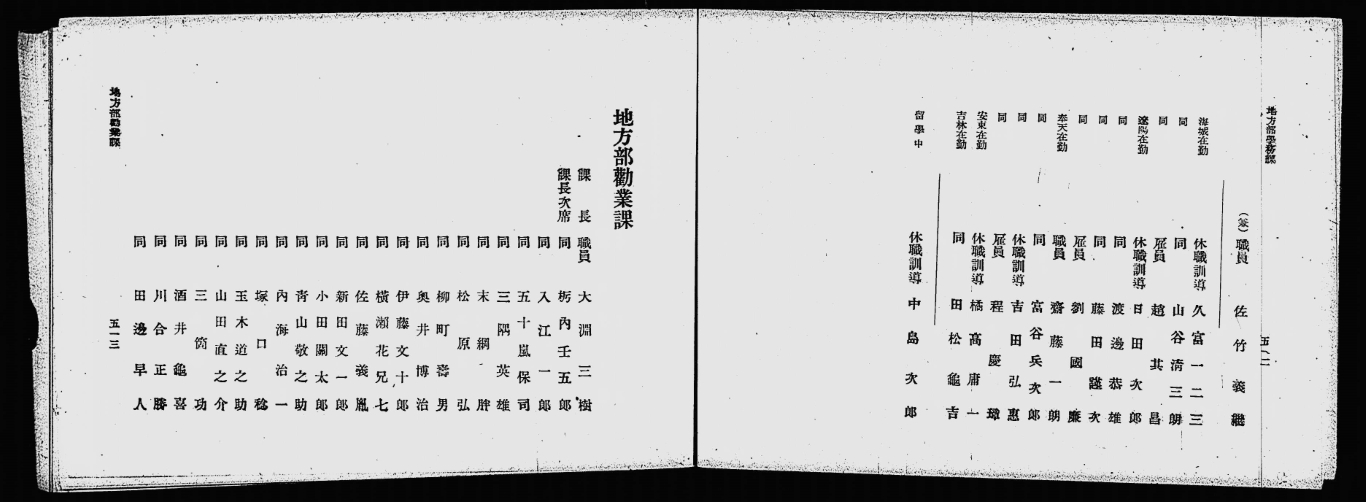 地方部學務課
五一二
(兼)職員 佐竹義繼
海城在勤 休職訓導 久富一二三
同 同 山谷淸三朗
同 雇員 趙其昌
遼陽在勤 休職訓導 日田次郎
同 同 渡邊恭雄
同 同 藤田
同 雇員 劉國廉
奉天在勤 職員 齋藤一朗
同 同 富谷兵次郎
同 休職訓導 吉田弘惠
同 雇員 程慶璋
安東在勤 休職訓導 橘高庸一
吉林在勤 同 田松龜吉
留學中 休職訓導 中島次郎
地方部勸業課
課長 職員 大淵三樹
課長次席 同 栃內壬五郎
同 入江一郎
同 五十嵐保司
同 三隅英雄
同 末綱
同 松原弘
同 柳町壽男
同 奧井博治
同 伊藤文十郎
同 橫瀨花兄七
同 佐藤義胤
同 新田文一郎
同 小田關太郎
同 靑山敬之助
同 內海治一
同 塚口稔
同 玉木道之助
同 山田直之介
同 三筒功
同 酒井龜喜
同 川合正勝
同 田邊早人
地方部勸業課
五一三